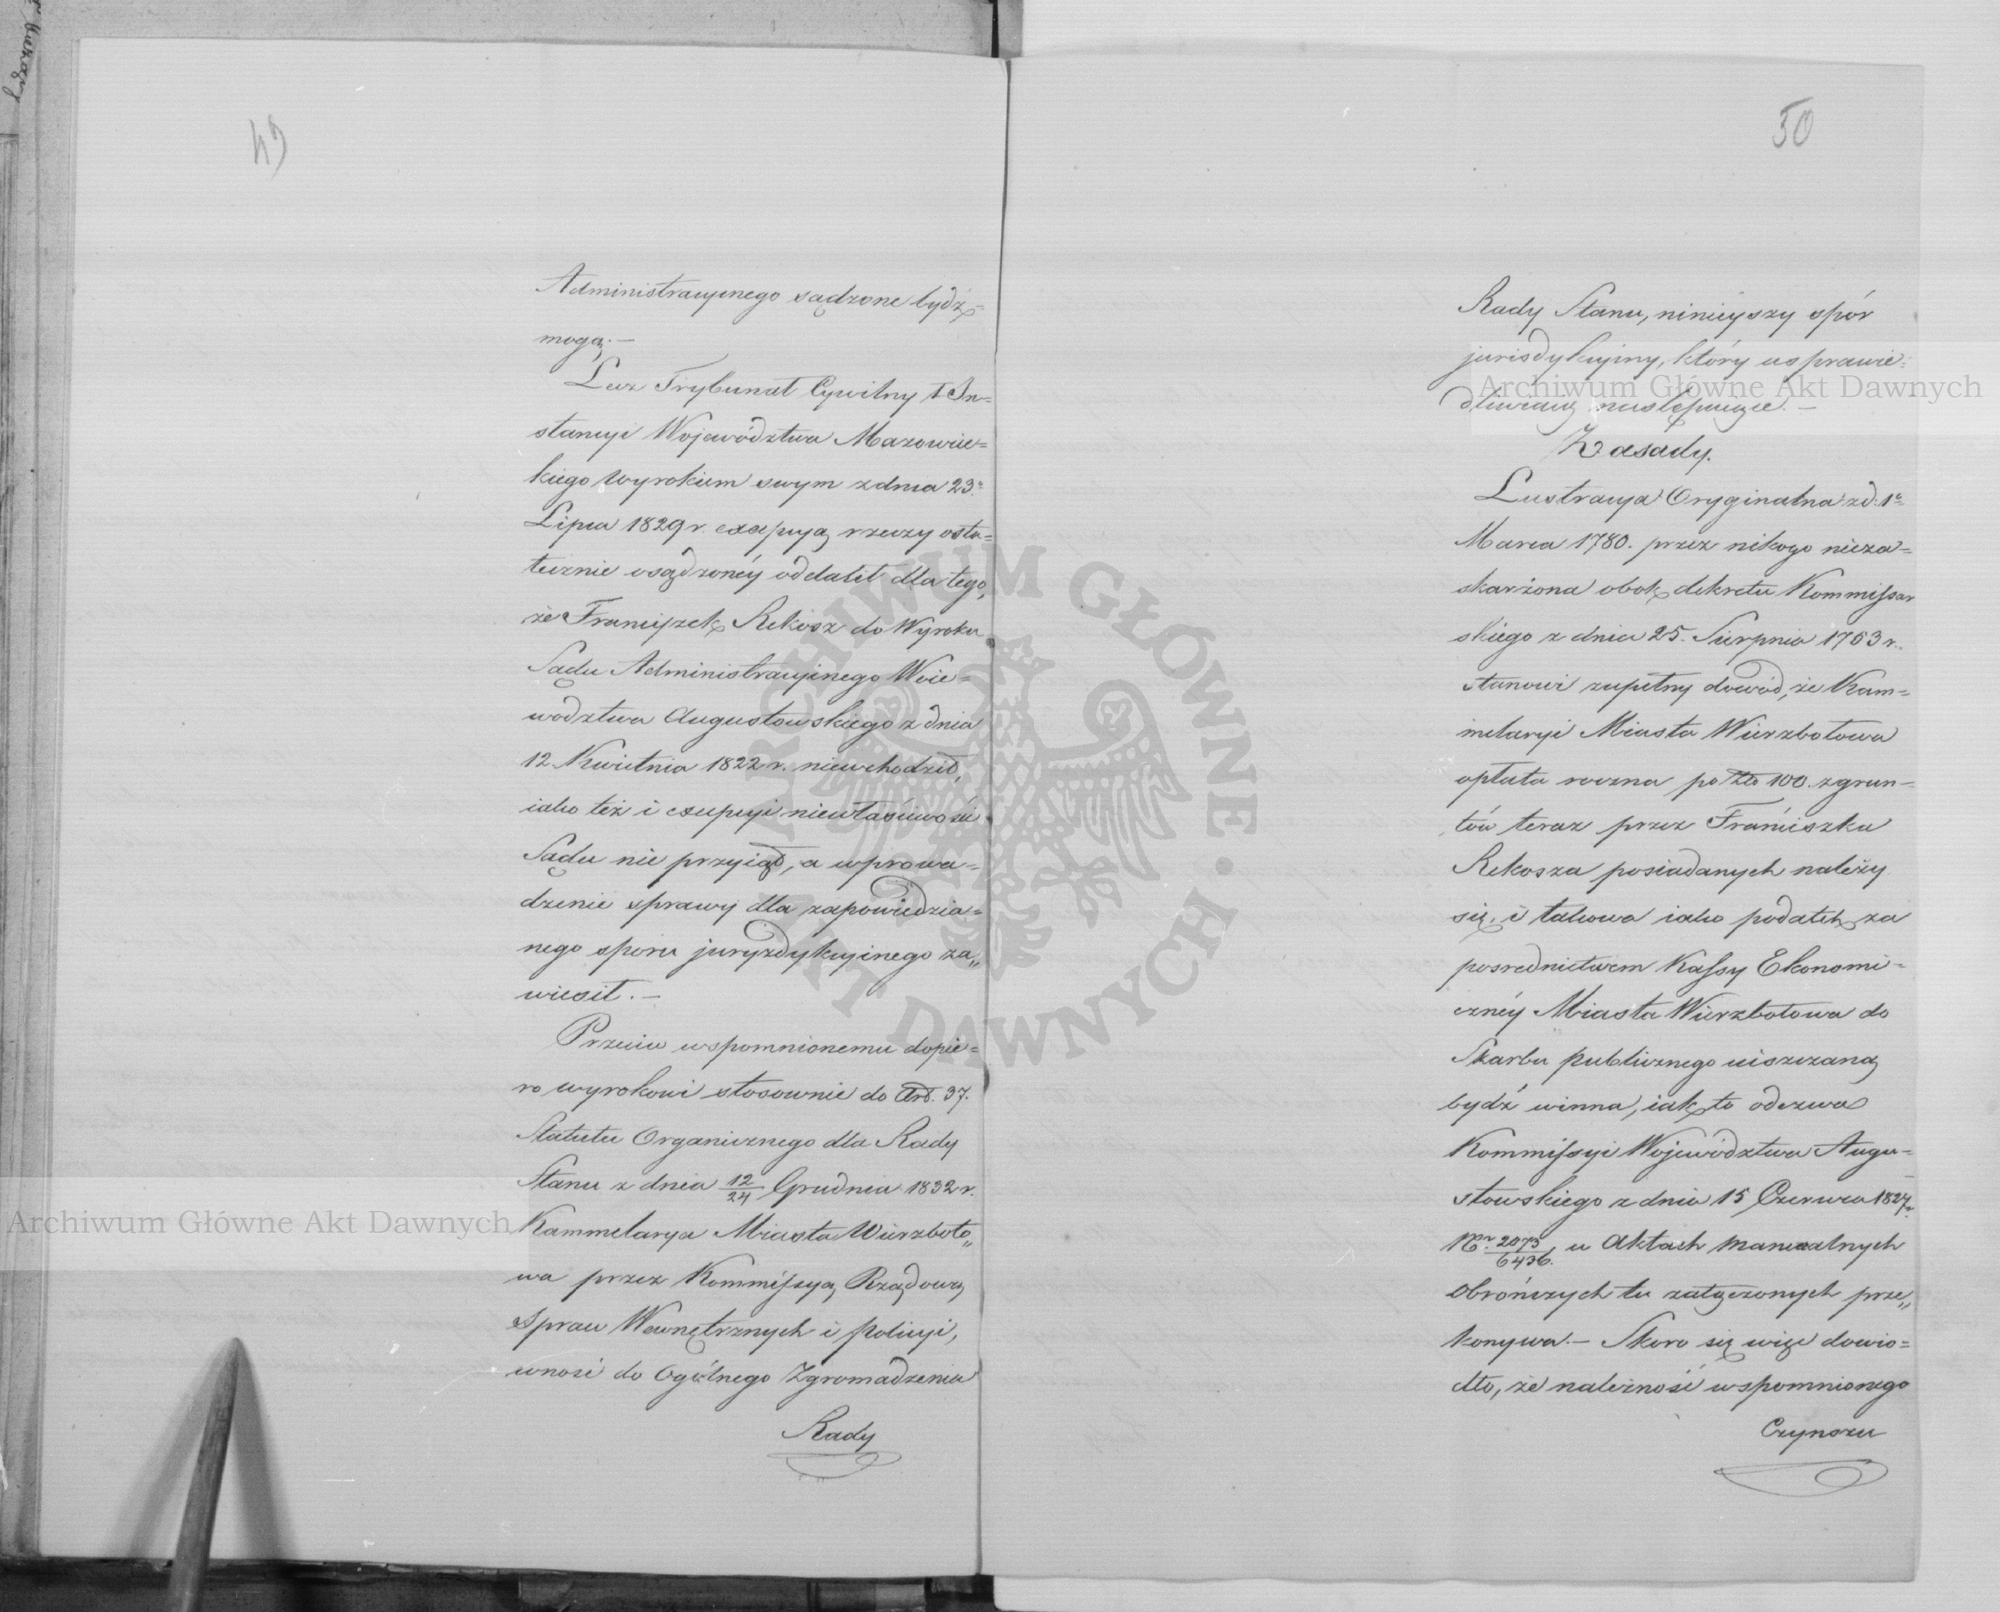 49
Administracyinego sądzone bydź
mogą. —
Lecz Trybunał Cywilny I In=
stancyi Województwa Mazowiec=
kiego wyrokiem swym z dnia 23.
Lipca 1829 r. excepcyą rzeczy osta=
tecznie osądzonéy oddalił dla tego,
że Franciszek Rekosz do Wyroku
Sądu Administracyinego Woie=
wództwa Augustowskiego z dnia
12 Kwietnia 1822 r. niewchodził,
iako też i excepcyi niewłaściwości
Sądu nie przyiął, a wprowa=
dzenie sprawy dla zapowiedzia=
nego sporu juryzdykcyinego za„
wiesił. —
Przeciw wspomnionemu dopie=
ro wyrokowi stosownie do Art. 37.
Statutu Organicznego dla Rady
Stanu z dnia 12/24 Grudnia 1832 r.
Kammelarya Miasta Wierzboło„
wa przez Kommissyą Rządową
Spraw Wewnętrznych i Policyi,
wnosi do Ogólnego Zgromadzenia
Rady
50
Rady Stanu, ninieyszy spór
jurisdykcyiny, który usprawie=
dliwiaią następuiące. —
Zasady.
Lustracya Oryginalna z d. 1o
Marca 1780. przez nikogo nieza=
skarżona obok dekretu Kommissar
skiego z dnia 25. Sierpnia 1763 r.
stanowi zupełny dowód, że Kam=
melaryi Miasta Wierzbołowa
opłata roczna po Złto 100. z grun=
tów teraz przez Franciszka
Rekosza posiadanych należy
się, i takowa iako podatek za
posrednictwem Kassy Ekonomi=
cznéy Miasta Wierzbołowa do
Skarbu Publicznego uiszczaną
bydź winna, iak to odezwa
Kommissyi Województwa Augu=
stowskiego z dnia 15 Czerwca 1827 r.
Nr. 2073/6436. w Aktach manualnych
Obrończych tu załączonych prze„
konywa. — Skoro się więc dowio=
dło, że należność wspomnionego
Czynszu
Archiwum Główne Akt Dawnych
Archiwum Główne Akt Dawnych
ARCHIWUM GŁÓWNE · AKT DAWNYCH ·